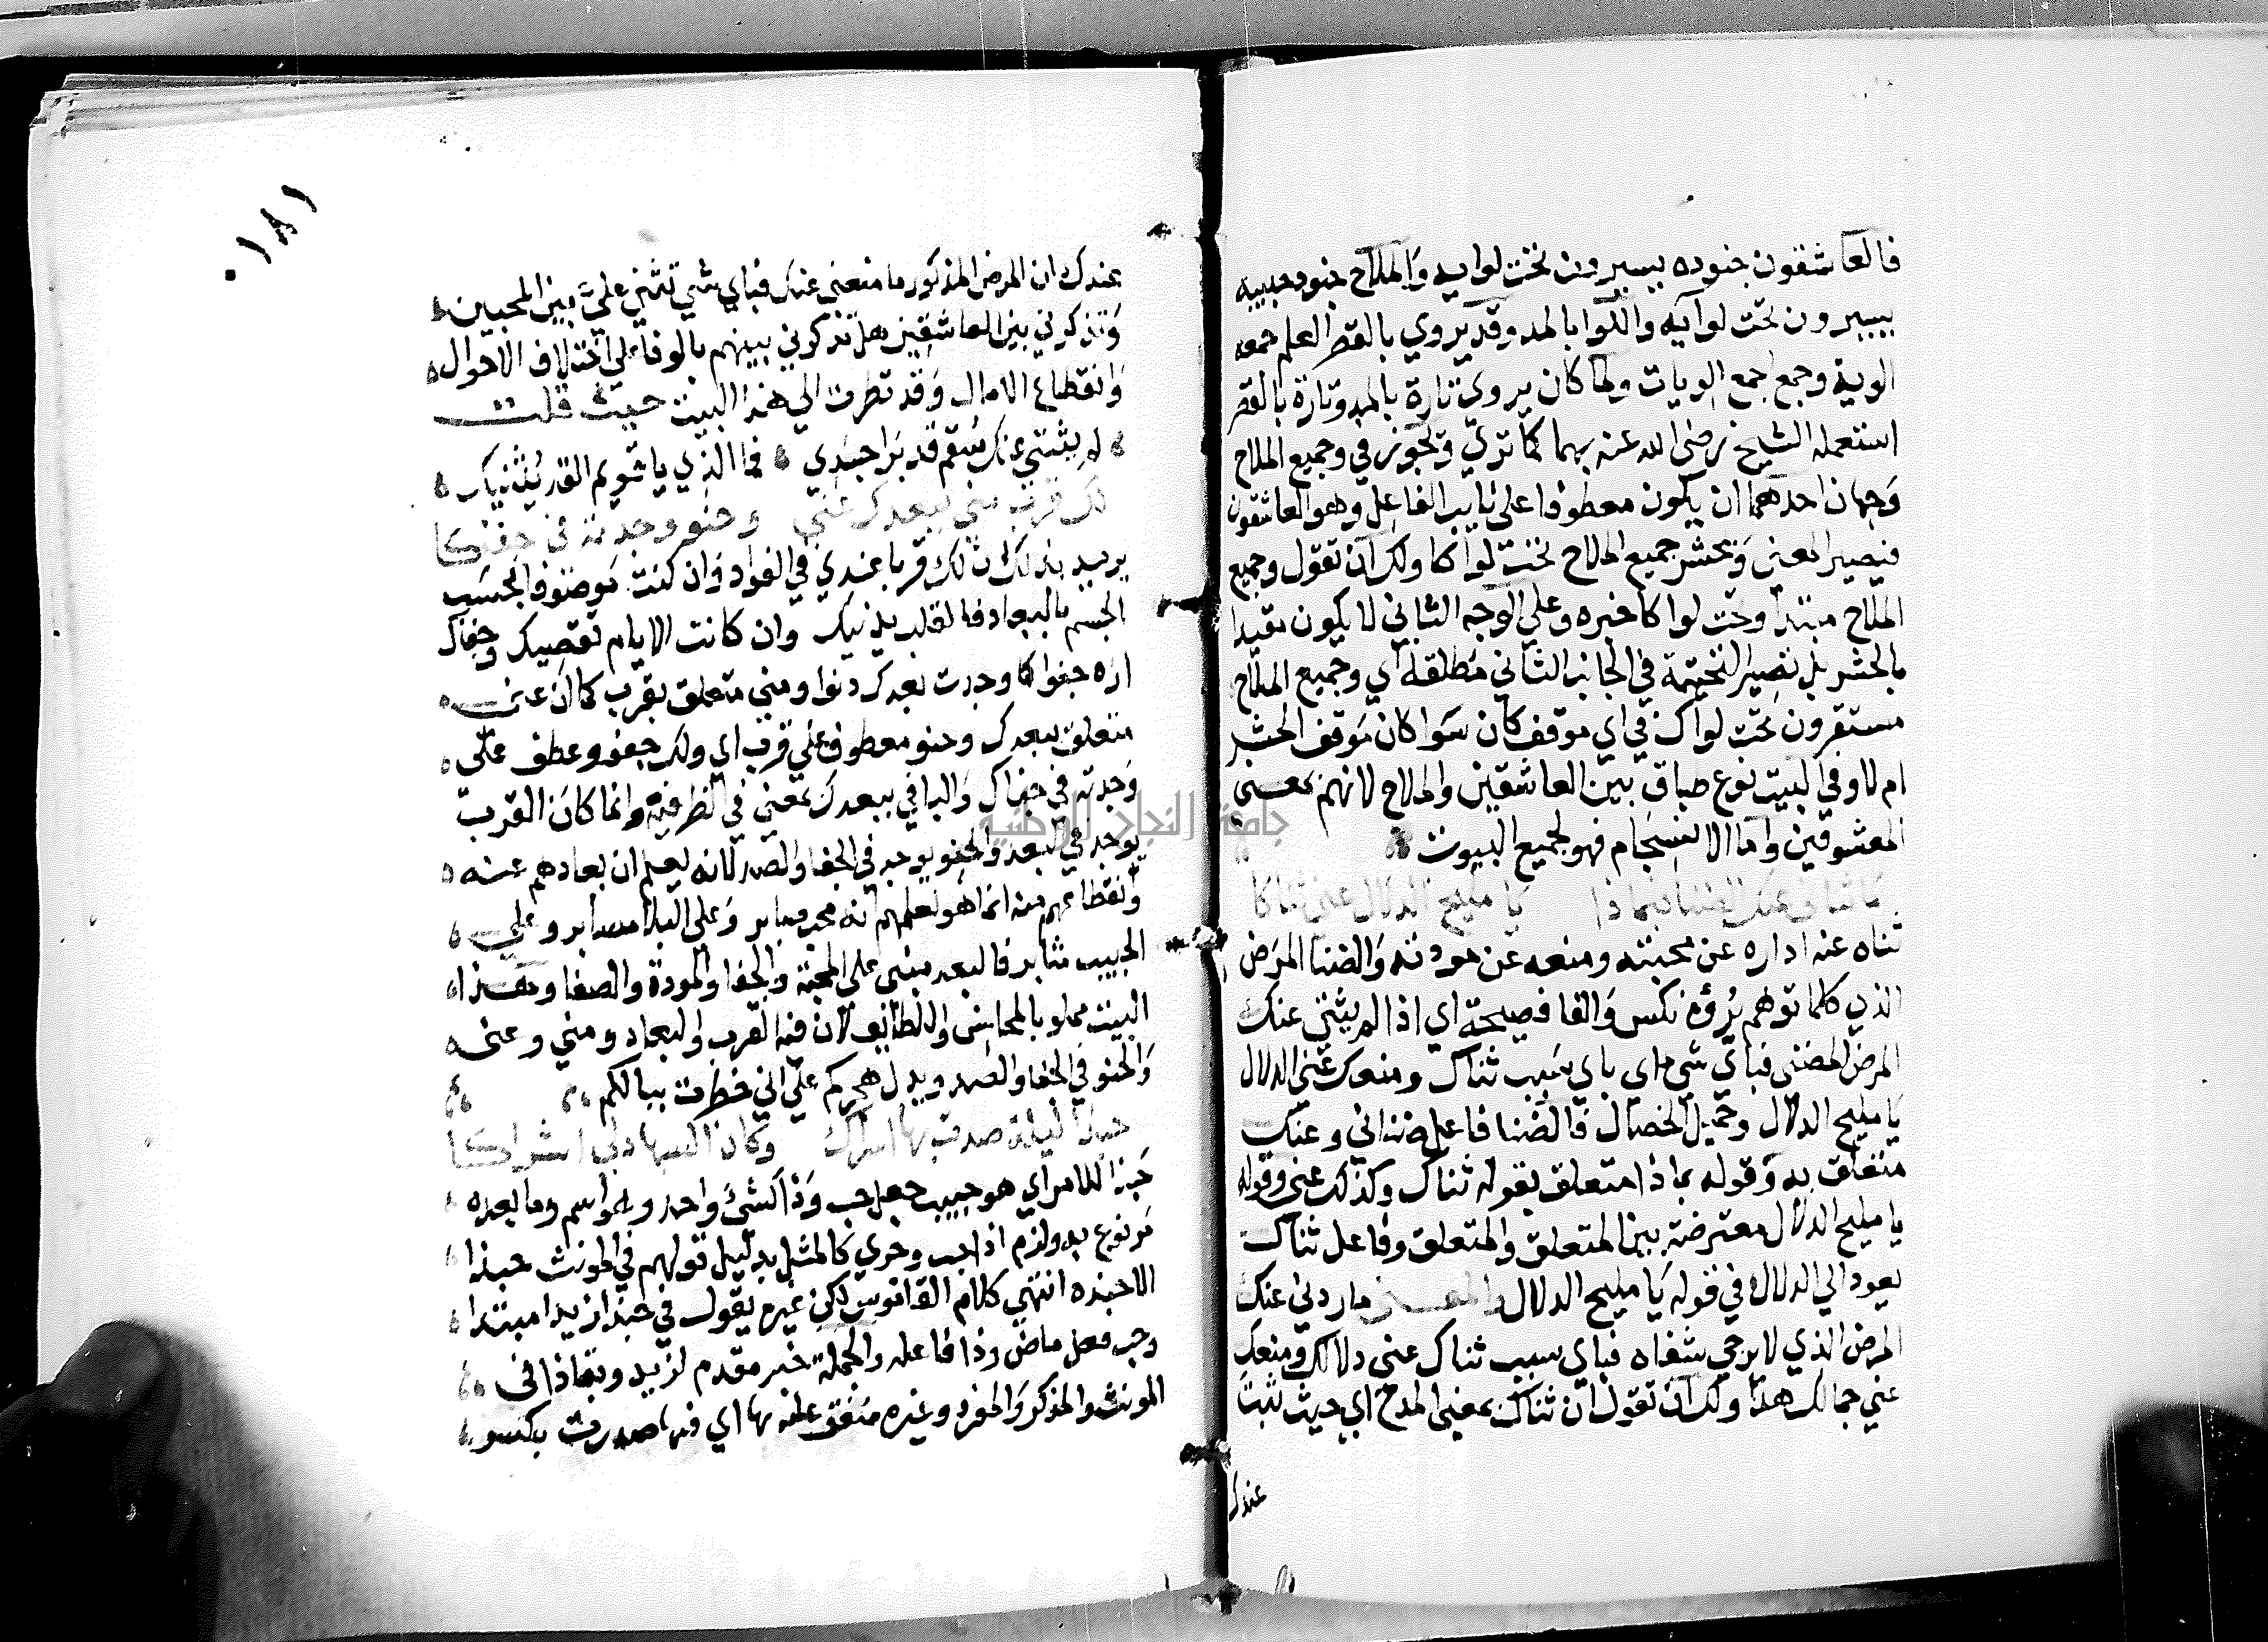 فالعاشقون جنوده يسيرون تحت لوايه والملاح جنود حبيبه
يسيرون تحت لوآيه واللوا بالمد وقد يروي بالقصر العلم جمعه
الوية وجمع الجمع الويات ولما كان يروي تارة بالمد وتارة بالقصر
استعمله الشيخ رضى الله عنه بهما كما تري ويجوز في وجميع الملاح
وجهان احدهما ان يكون معطوفا على نايب الفاعل وهو العاشقون
فيصير المعنى وتحشر جميع الملاح تحت لواكا ولك ان تقول وجميع
الملاح مبتدأ وتحت لواكا خبره وعلي الوجه الثاني لا يكون مقيدا
بالحشر بل تصير التحتية في الجانب الثاني مطلقة اي وجميع الملاح
مستقرون تحت لواك في اي موقف كان سوا كان موقف الحشر
ام لا وفي البيت نوع طباق بين العاشقين والملاح لانهم بمعنى
المعشوقين واما الانسجام فهو لجميع البيوت
يا مليح الدلال عني ثناكا
ثناه عنه اداره عن محبته ومنعه عن مودته والضنا المرض
الذي كلما توهم برؤه نكس والفا فصيحة اي اذا لم يثنني عنك
المرض المضنى فباي شي اي باي سبب ثناك ومنعك عني الدلال
يا مليح الدلال وجميل الخصال فالضنا فاعل ثناني وعنك
متعلق به وقوله بماذا متعلق بقوله ثناك وكذلك عني وقوله
يا مليح الدلال معترضة بين المتعلق والمتعلق وفاعل ثناك
يعود الي الدلال في قوله يا مليح الدلال والمعنى ما ردني عنك
المرض الذي لا يرجي شفاه فباي سبب ثناك عني دلالك ومنعك
عني جمالك هذا ولك ان تقول ان ثناك بمعني المدح اي حيث ثبت
عندك
١٨١
عندك ان المرض المذكور ما منعني عنك فباي شي تثني علي بين المحبين
وتذكرني بين العاشقين هل تذكرني بينهم بالوفا علي اختلاف الاحوال
وانقطاع الامال وقد نظرت الي هذا البيت حيث قلت
لم يثنني عنك سقم قد برا جسدي فما الذي يا قويم القد يثنيك
لك قرب مني ببعدك عني وحنو وجدته في جفاكا
يريد بذلك ان لك قربا عندي في الفواد وان كنت موصوفا بحسب
الجسم بالبعاد فالقلب يدنيك وان كانت الايام تقصيك وجفاك
اره حنوا كما وجدت بعدك دنوا ومني متعلق بقرب كما ان عني
متعلق ببعدك وحنو معطوف علي قرب اي ولك حنو وعطف علي
وجدته في جفاك والبا في ببعدك بمعني في الظرفية وانما كان القرب
يوجد في البعد والحنو يوجد في الجفا والصد لانه يعلم ان بعادهم عنه
وانقطاعهم منه انما هو لعلمهم انه محب صابر وعلي البلا مصابر وعلي
الحبيب مثابر فالبعد مبني علي المحبة والجفا والمودة والصفا وهذا
البيت مملو بالمحاسن واللطايف لان فيه القرب والبعاد ومني وعني
والحنو في الجفا والصد ويدل هجركم علي اني خطرت ببالكم
حبذا ليلة صدت بها اسراك وكان السهاد لي اشراكا
حبذا الامر اي هو حبيب جعل حب وذا كشئ واحد وهو اسم وما بعده
مرفوع به ولزم ذا حب وجري كالمثل بدليل قولهم في المونث حبذا
لا حبذه انتهي كلام القاموس لكن غيره يقول في حبذا زيد مبتدا
وحب فعل ماض وذا فاعله والجملة خبر مقدم لزيد وبقا ذا في
المونث والمذكر والمفرد وغيره متفق عليه بها اي فيها صدت بكسر